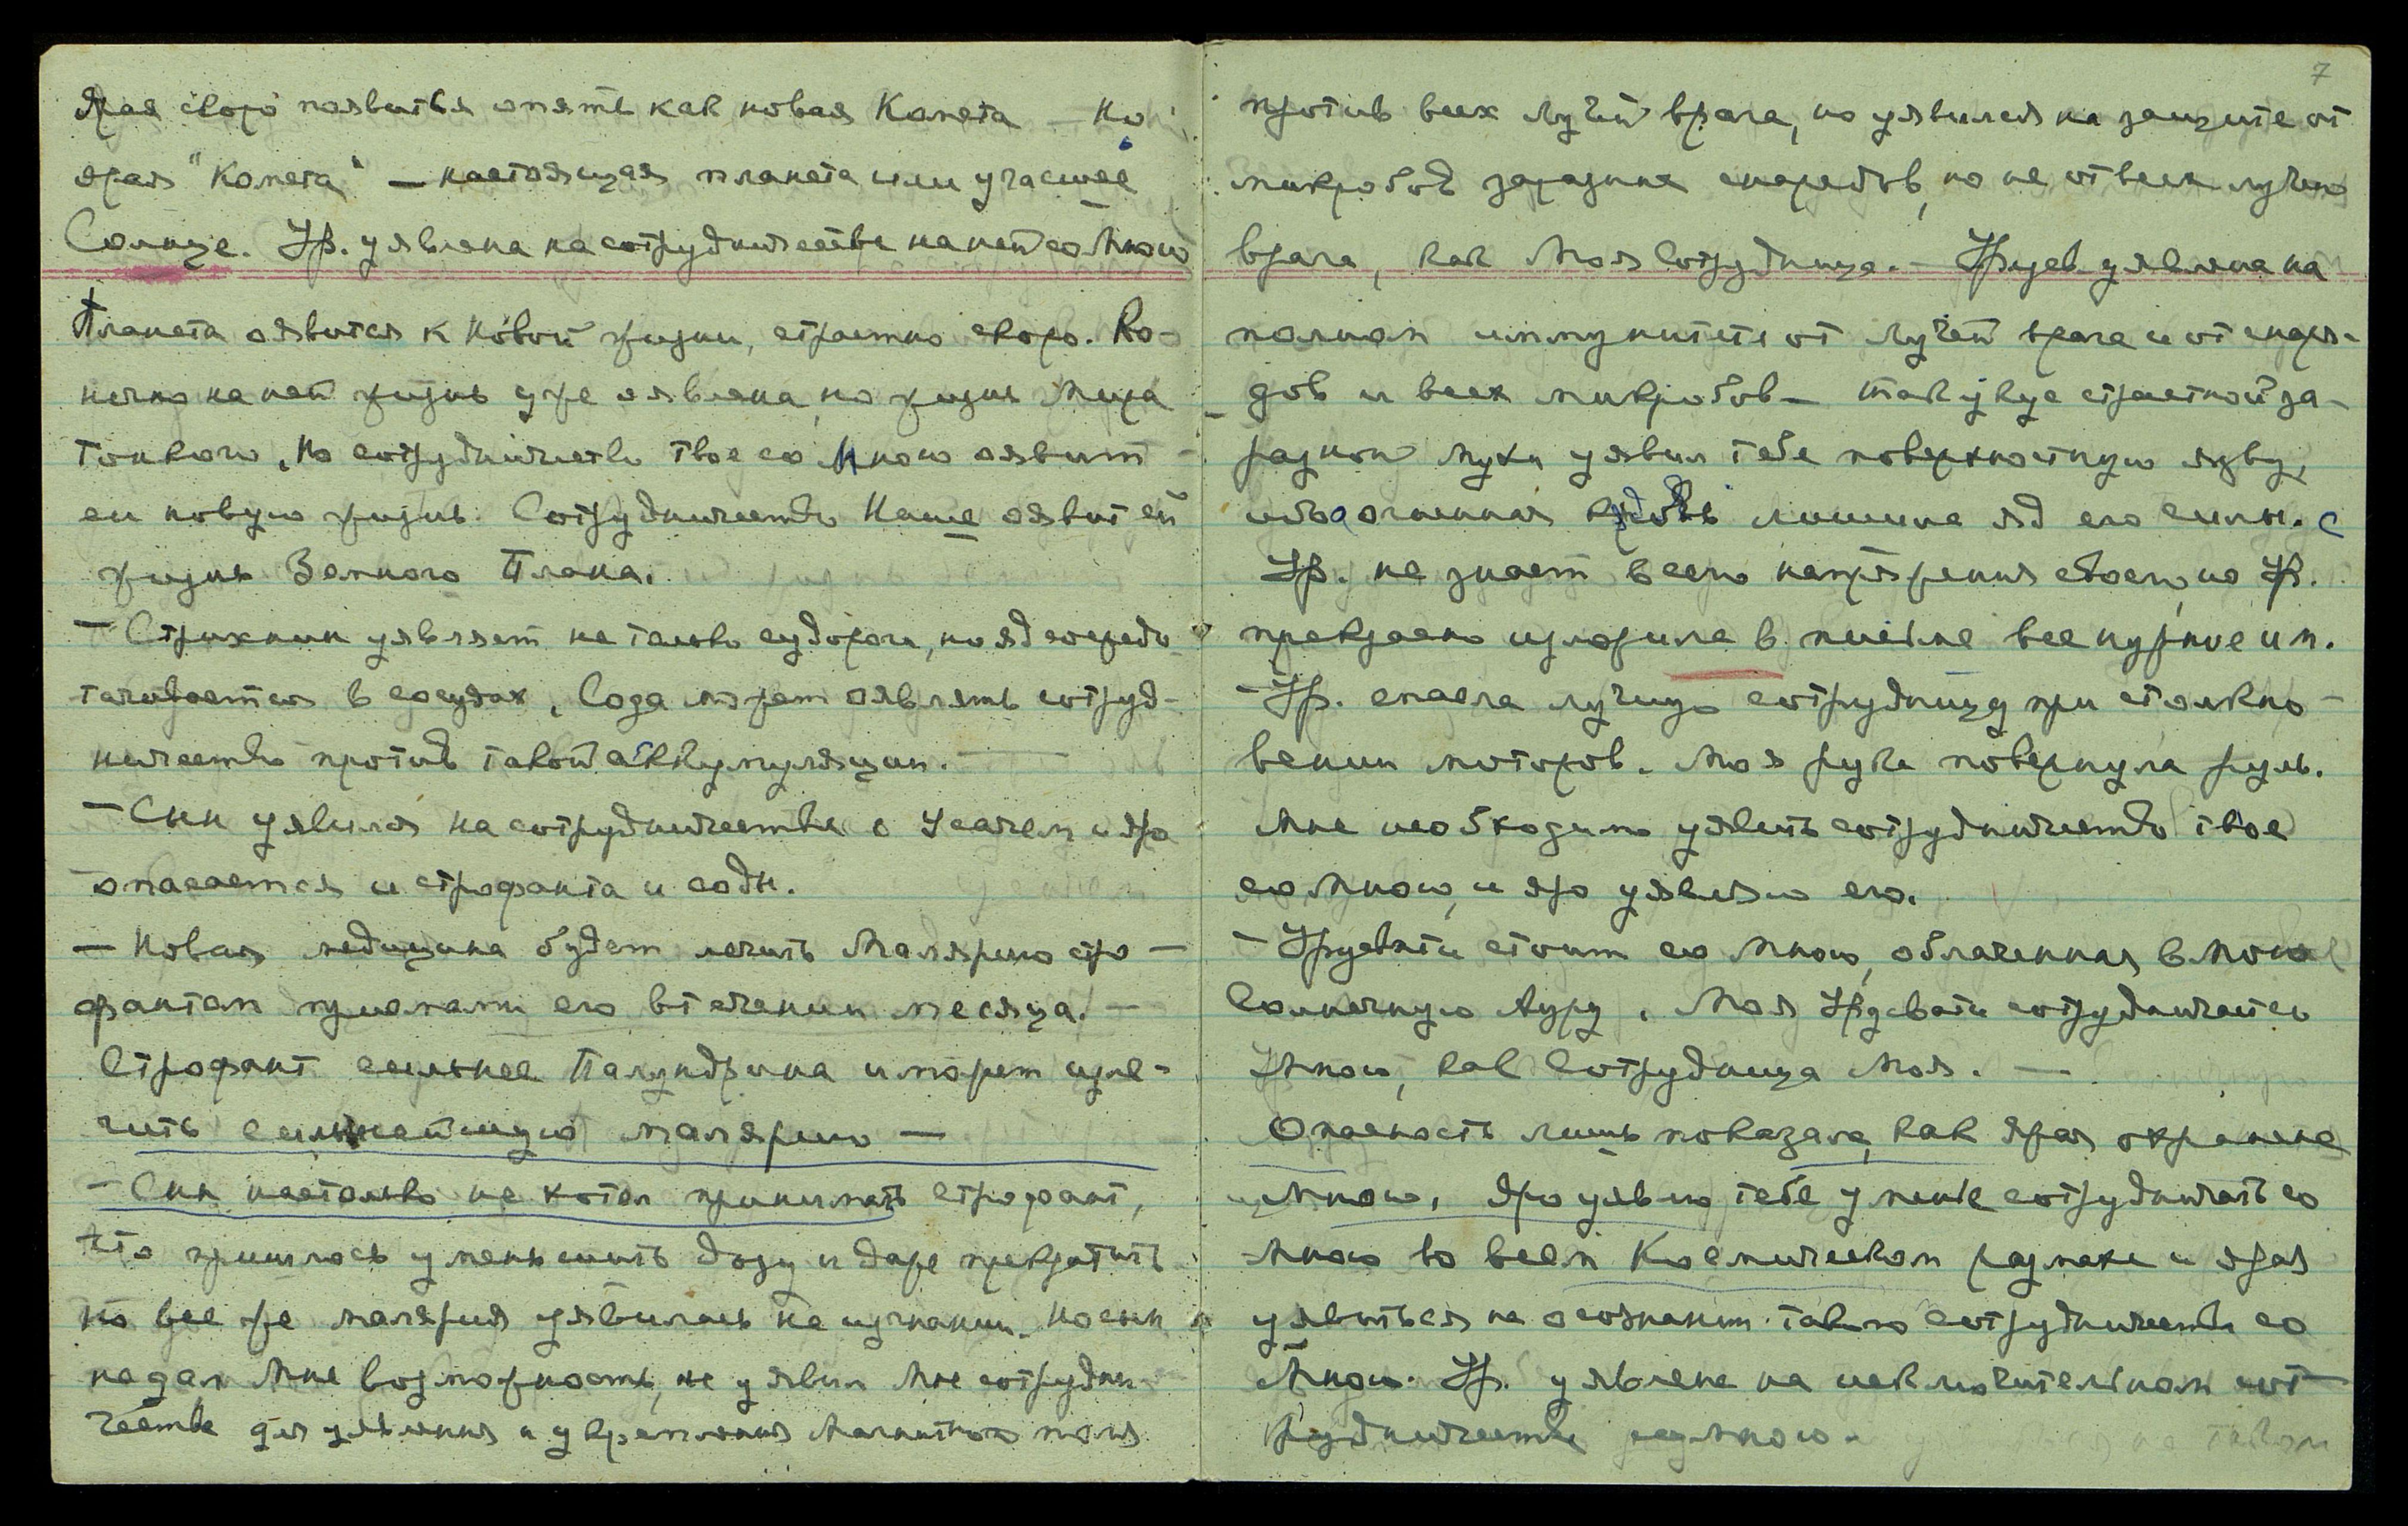 Ярая скоро появиться опять как новая Комета — Но
ярая "Комета" — настоящая планета или угасшее
Солнце. Ур. уявлена на сотрудничестве на ней со Мною
Планета оявится к новой жизни, страстно скоро. Ко-
нечно на ней жизнь уже оявлена, но жизнь Мира
Тонкого. Но сотрудничество твое со Мною оявит
ей новую жизнь. Сотрудничество Наше оявит ей
жизнь Земного Плана.
— Стрихнин уявляет не только судороги, но яд сосредо
тачивается в сосудах. Сода может оявлять сотруд-
ничество против такой аккумуляции. —
— Сын уявился на сотрудничестве с и яро
опасается и строфанта и соды.
— Новая медицина будет лечить Малярию стро —
фантом приемами его в течении месяца. —
Строфант сильнее Палундрина и может изле-
чить сильнейшую малярию —
— Сын настолько не хотел принимать строфант,
что пришлось уменьшить дозу и даже прекратить
но все же малярия уявилась на изгнании. Но сын
не дал Мне возможность, не уявил Мне сотрудни
честве для уявления и укрепления Магнитного поля
7
против всех лучей врага, но уявился на защите от
микробов заразных снарядов, но не от всех лучей
врага, как Моя Сотрудница. — Урусв. уявлена на
полном иммунитете от лучей врага и от снаря-
дов и всех микробов — Так укус страстной за-
разной мухи уявил тебе поверхностную язву,
ибо огненная кровь лишила яд его силы.
Ур. не знает всего напряжения своего, но Ур.
прекрасно изложила в письме все нужное и м.
— Ур. спасла лучшую сотрудницу при столкно —
вении моторов. Моя рука повернула руль.
Мне необходимо уявить сотрудничество твое
со Мною, и яро уявляю его.
— Урусвати стоит со Мною, облаченная в Мою
Солнечную Ауру. Моя Урусвати сотрудничает со
Мною, как Сотрудница Моя. —
Опасность лишь показала, как ярая охранена
Мною. Яро уявлю тебе умение сотрудничать со
Мною во всем Космическом размахе и ярая
уявиться на осознании такого сотрудничества со
Мною. Ур. уявлена на исключительном сот
рудничестве со Мною.